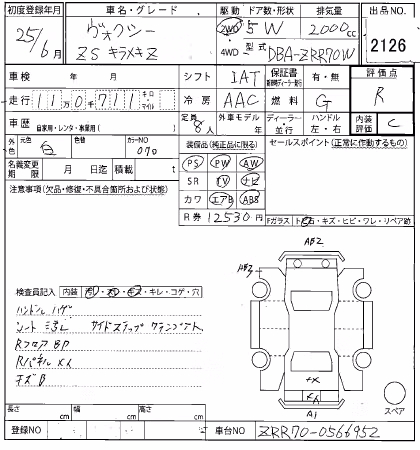 初度登録年月 車名・グレード 駆動 ドア数・形状 排気量 出品NO.
25/6月 ヴォクシー 2WD 5W 2000cc
ZS キラメキZ 4WD 型式 DBA-ZRR70W 2126
車検 年 月 シフト IAT 保証書 有・無 評価点
走行 110711 キロ・マイル 冷房 AAC 燃料 G R
車歴 自家用・レンタ・事業用( ) 定員 8人 外車モデル 年 ディーラー・並行 ハンドル 左・右 内装評価 C
外色 元色 白 色替 カラーNO 070 装備品(純正品に限る) セールスポイント(正常に作動するもの)
PS PW AW
名義変更期限 月 日迄 積載 t SR TV ナビ
注意事項(欠品・修復・不具合箇所および状態) カワ エアB ABS
R券 12530円 Fガラス トビ石・キズ・ヒビ・ワレ・リペア跡
AB2
検査員記入 内装 汚レ・スレ・キズ・キレ・コゲ・穴
ハンドルハゲ
シート ヨゴレ サイドステップ
RフロアBP
Rパネルメイ
キズB
A1
スペア
長さ cm 幅 cm 高さ cm
登録NO 車台NO ZRR70-0566952